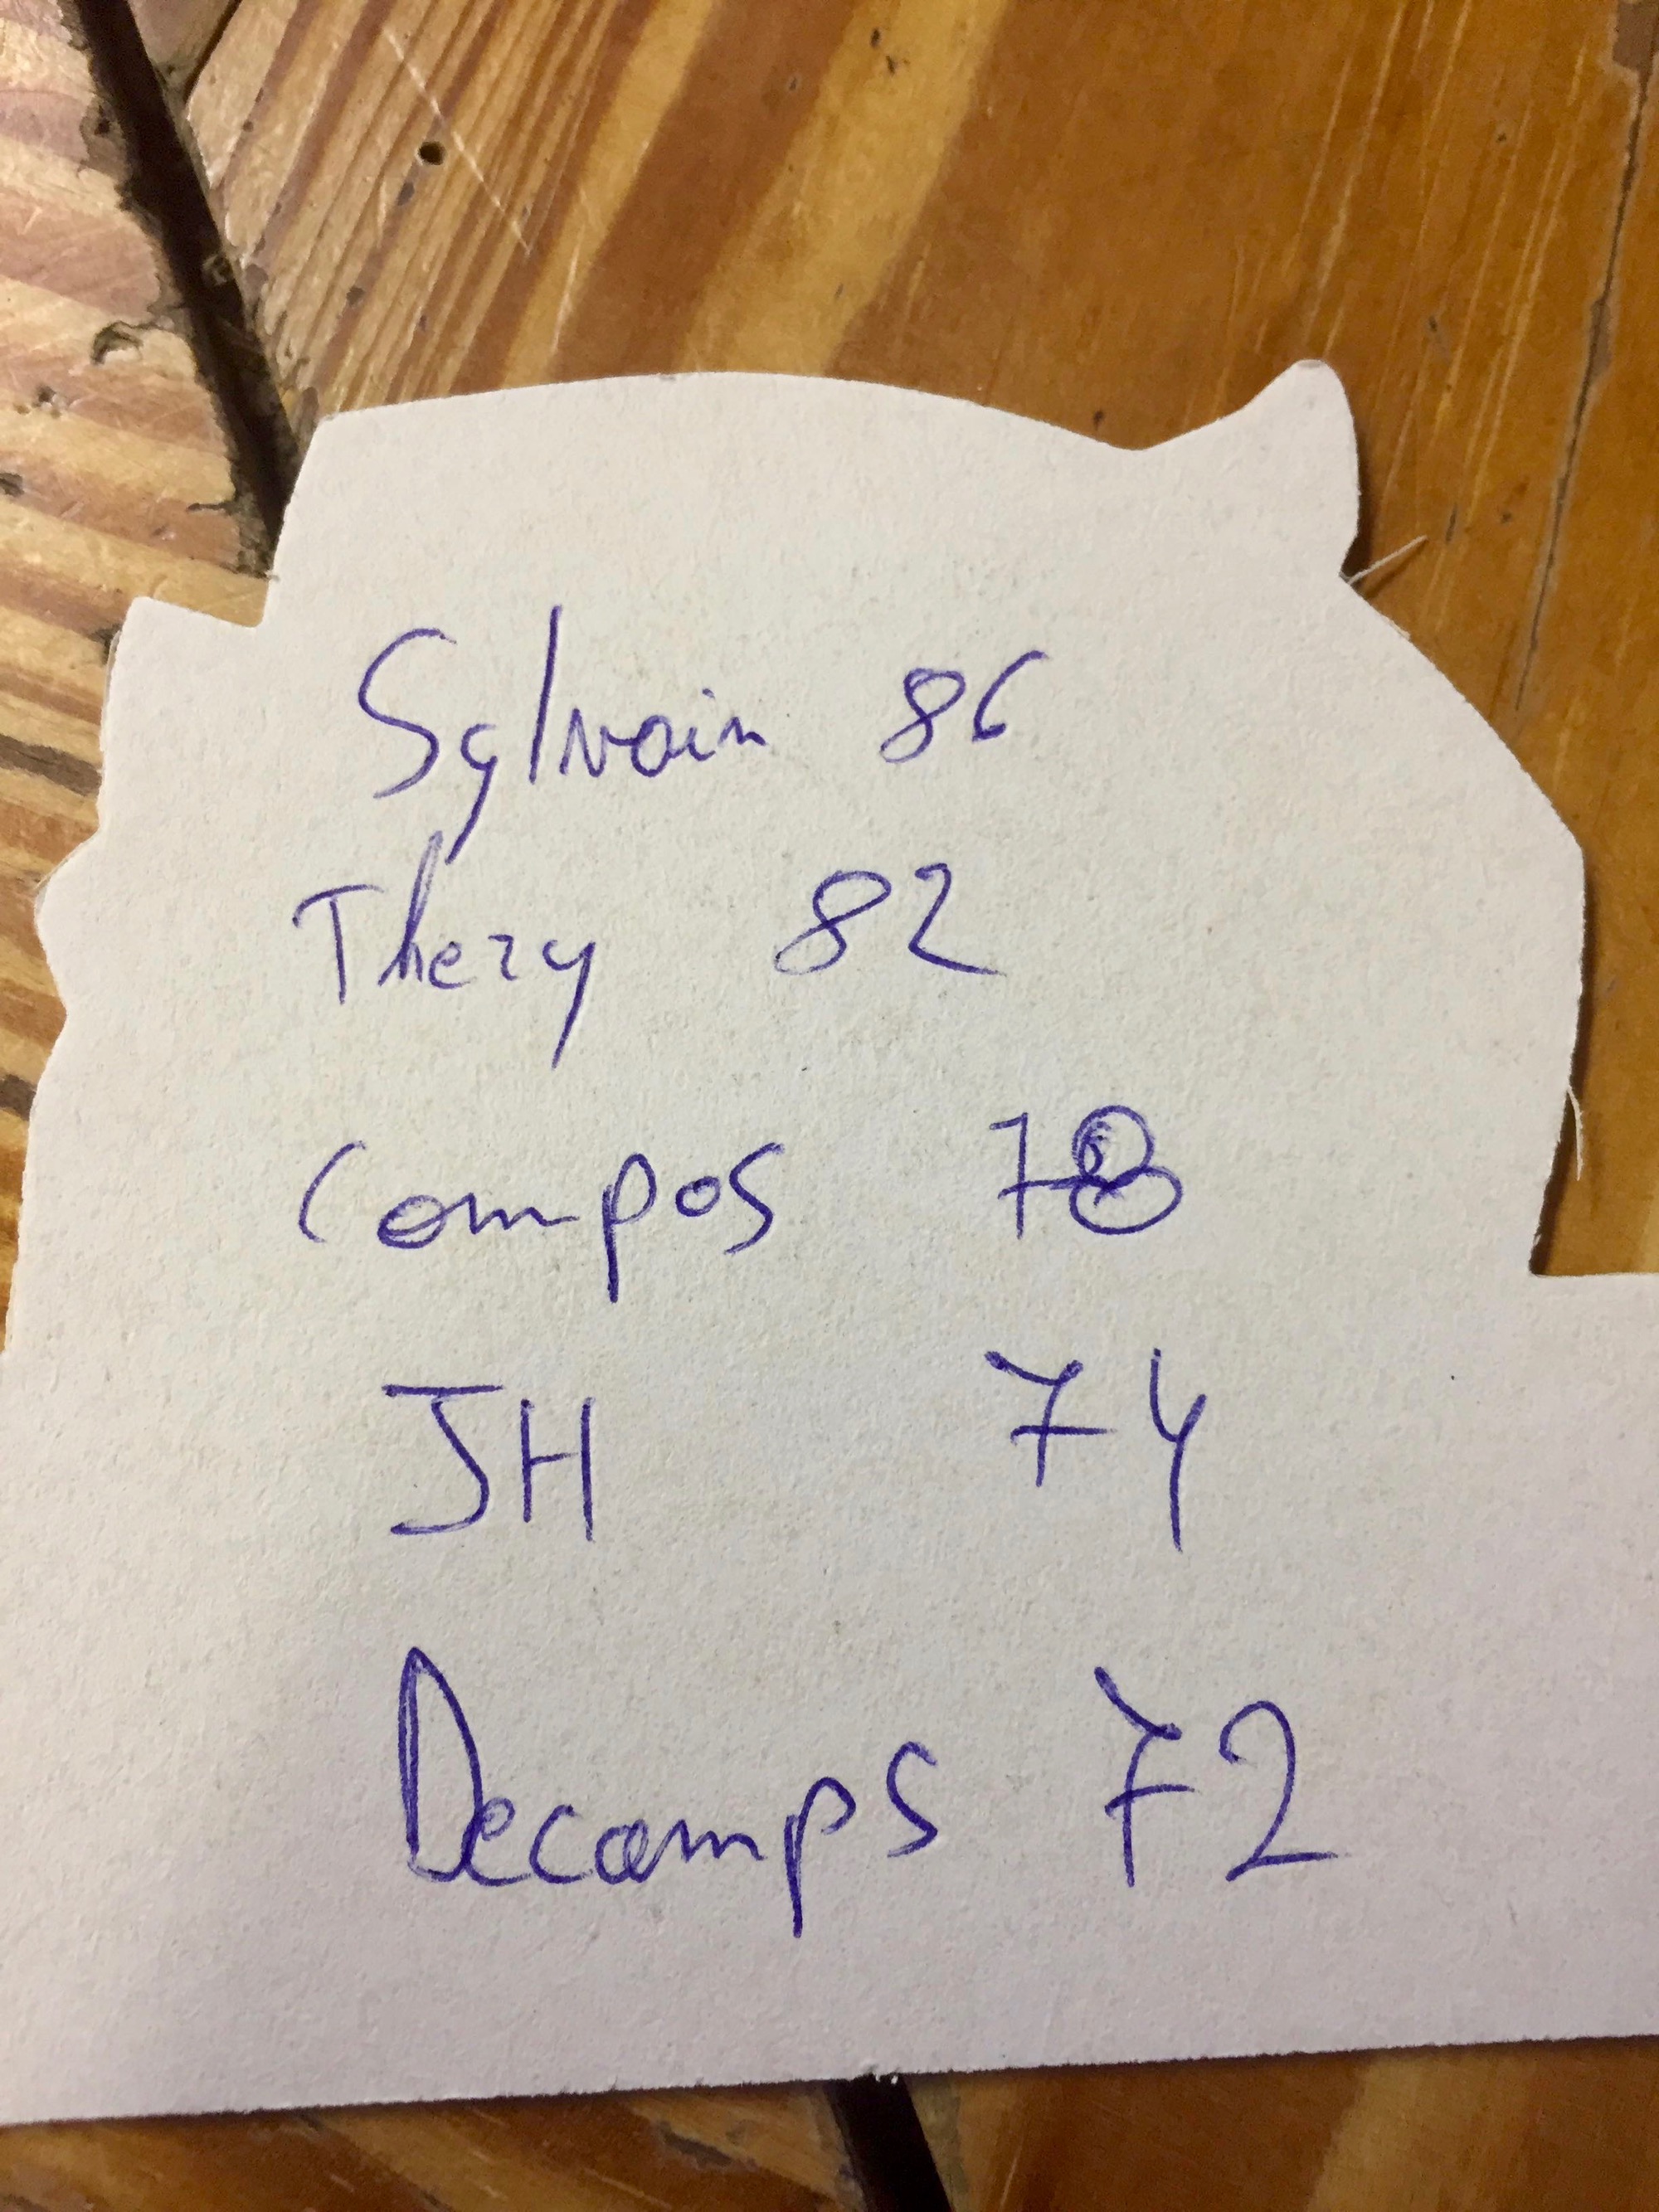 Sylvain 86
Thery 82
Compos 78
JH 74
Decamps 72